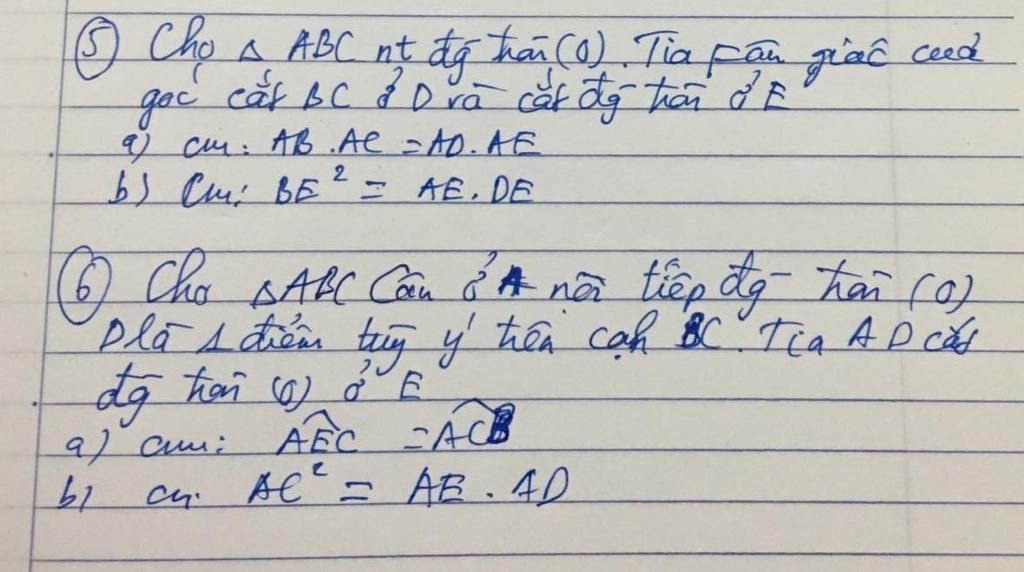 ⑤ Cho △ ABC nt đg tròn (O). Tia fân giác của
góc cắt BC ở D và cắt đg tròn ở E
a) cm: AB.AC = AD.AE
b) Cm: BE² = AE.DE
⑥ Cho △ABC Cân ở A nội tiếp đg tròn (O)
D là 1 điểm tùy ý trên cạh BC. Tia AD cắt
đg tròn (O) ở E
a) cm: AEC = ACB
b) cm. AC² = AE . AD